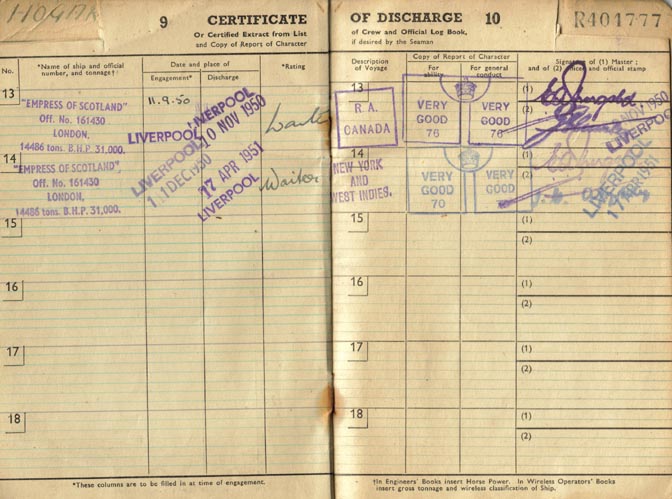 HOGAN
9 CERTIFICATE
Or Certified Extract from List
and Copy of Report of Character
No.
*Name of ship and official
number, and tonnage†
Date and place of
Engagement* Discharge
*Rating
13
"EMPRESS OF SCOTLAND"
Off. No. 161430
LONDON,
14486 tons. B.H.P. 31,000.
11.9.50
LIVERPOOL
LIVERPOOL
10 NOV 1950
14
"EMPRESS OF SCOTLAND",
Off. No. 161430
LONDON,
14486 tons. B.H.P. 31,000.
LIVERPOOL
11 DEC 1950
17 APR 1951
LIVERPOOL
Waiter
15
16
17
18
*These columns are to be filled in at time of engagement.
OF DISCHARGE 10
of Crew and Official Log Book,
if desired by the Seaman
R401777
Description
of Voyage
Copy of Report of Character
For
ability
For general
conduct
Signature of (1) Master;
and of (2) officer and official stamp
13
R.A.
CANADA
VERY
GOOD
76
VERY
GOOD
76
(1)
(2)
NOV 1950
LIVERPOOL
14
NEW YORK
AND
WEST INDIES.
VERY
GOOD
70
VERY
GOOD
(1)
(2)
LIVERPOOL
17 APR 1951
15
(1)
(2)
16
(1)
(2)
17
(1)
(2)
18
(1)
(2)
†In Engineers' Books insert Horse Power. In Wireless Operators' Books
insert gross tonnage and wireless classification of Ship.